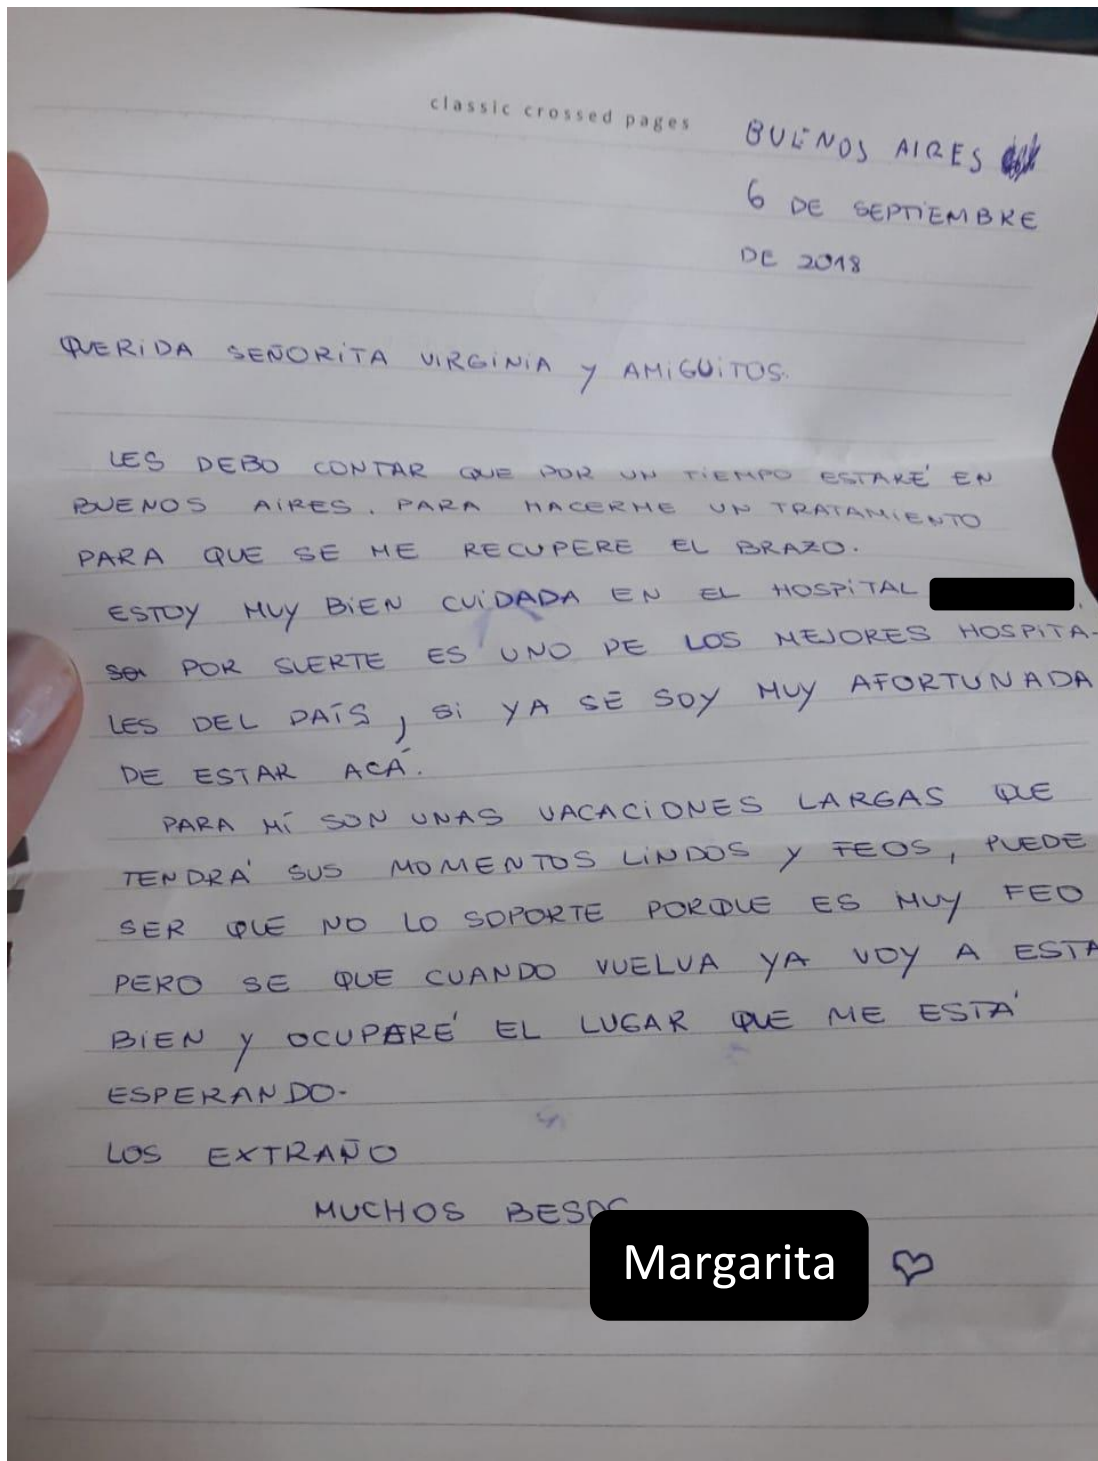 classic crossed pages
BUENOS AIRES
6 DE SEPTIEMBRE
DE 2018
QUERIDA SEÑORITA VIRGINIA y AMIGUITOS.
LES DEBO CONTAR QUE POR UN TIEMPO ESTARÉ EN
BUENOS AIRES. PARA HACERME UN TRATAMIENTO
PARA QUE SE ME RECUPERE EL BRAZO.
ESTOY MUY BIEN CUIDADA EN EL HOSPITAL
POR SUERTE ES UNO DE LOS MEJORES HOSPITA-
LES DEL PAÍS, SI YA SE SOY MUY AFORTUNADA
DE ESTAR ACÁ.
PARA MÍ SON UNAS VACACIONES LARGAS QUE
TENDRÁ SUS MOMENTOS LINDOS y FEOS, PUEDE
SER QUE NO LO SOPORTE PORQUE ES MUY FEO
PERO SE QUE CUANDO VUELVA YA VOY A ESTA
BIEN y OCUPARÉ EL LUGAR QUE ME ESTÁ
ESPERANDO.
LOS EXTRAÑO
MUCHOS BESOS
Margarita